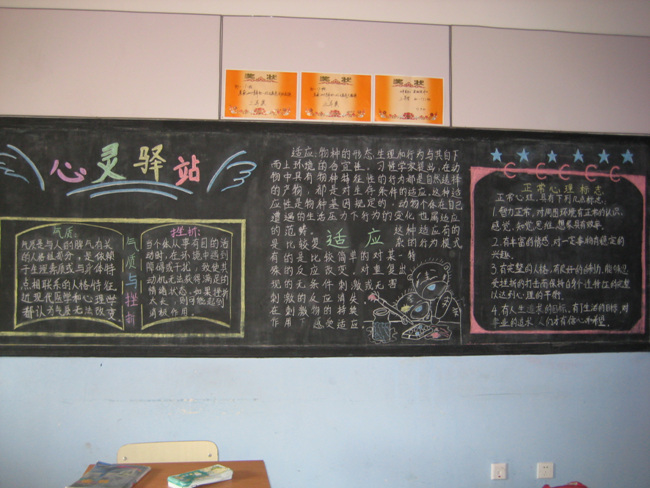 奖状
奖状
奖状
心灵驿站
气质:
气质是与人的脾气有关
的人格组成部分,是依赖
于生理素质或与身体特
点相联系的人格特征,
近现代医学和心理学
都认为与
气质与挫折
挫折:
当个体从事有目的活
动时,在环境中遇到
障碍或干扰,致使其
动机无法获得满足的
情绪状态,如果挫折
太大,则可能起到
消极作用。
适应:物种的形态、生理和行为与其自下
而上环境的适宜性。习性学家认为,在动
物中具有物种特征性的行为都是自然选择
的产物,都是对生存条件的适应,这种适
应性是物种基因规定的。动物个体在自己
遭遇的生活压力下行为的变化也属适应
的范畴。
适应
这种适应有的
是比较复杂的行为模式
有的是比较简单的对某一特
殊的反应改变,对重复出
现的无条件刺激或无害
刺激的反应消失
在刺激物的持续
作用下感受适应
正常心理标志
正常心理,具有下列几点标志。
1.智力正常,对周围环境有正常的认识,
感觉、知觉、思维、想象具有规律。
2.有丰富的情感,对一定事物有稳定的
兴趣。
3.有完整的人格,有良好的品德,能够忍
受挫折的打击而保持自身个性特征的完整
以达到心理的平衡。
4.有人生追求的目标,有生活的目标,对